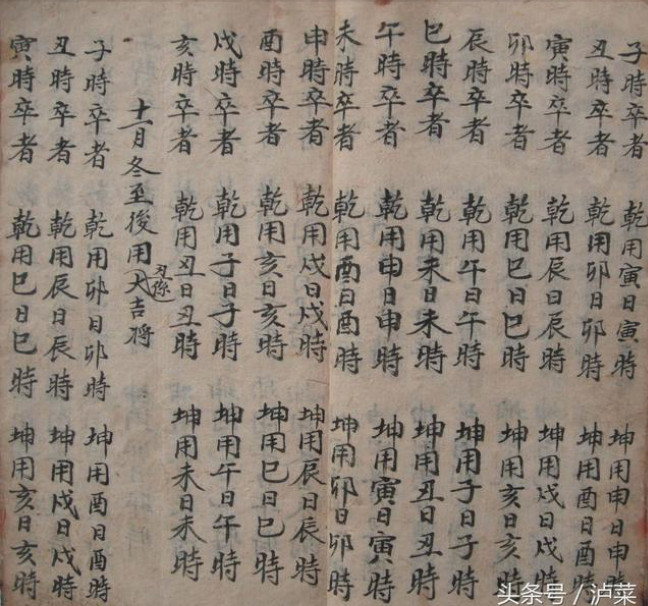 子時卒者 乾用寅日寅時 坤用申日申時
丑時卒者 乾用卯日卯時 坤用酉日酉時
寅時卒者 乾用辰日辰時 坤用戌日戌時
卯時卒者 乾用巳日巳時 坤用亥日亥時
辰時卒者 乾用午日午時 坤用子日子時
巳時卒者 乾用未日未時 坤用丑日丑時
午時卒者 乾用申日申時 坤用寅日寅時
未時卒者 乾用酉日酉時 坤用卯日卯時
申時卒者 乾用戌日戌時 坤用辰日辰時
酉時卒者 乾用亥日亥時 坤用巳日巳時
戌時卒者 乾用子日子時 坤用午日午時
亥時卒者 乾用丑日丑時 坤用未日未時
十一月冬至後用大吉將
子時卒者 乾用卯日卯時 坤用酉日酉時
丑時卒者 乾用辰日辰時 坤用戌日戌時
寅時卒者 乾用巳日巳時 坤用亥日亥時
头条号／泸菜